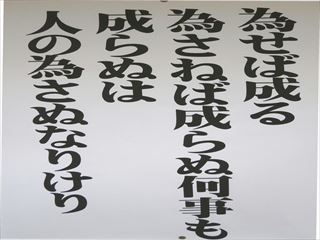 為せば成る
為さねば成らぬ何事も
成らぬは
人の為さぬなりけり